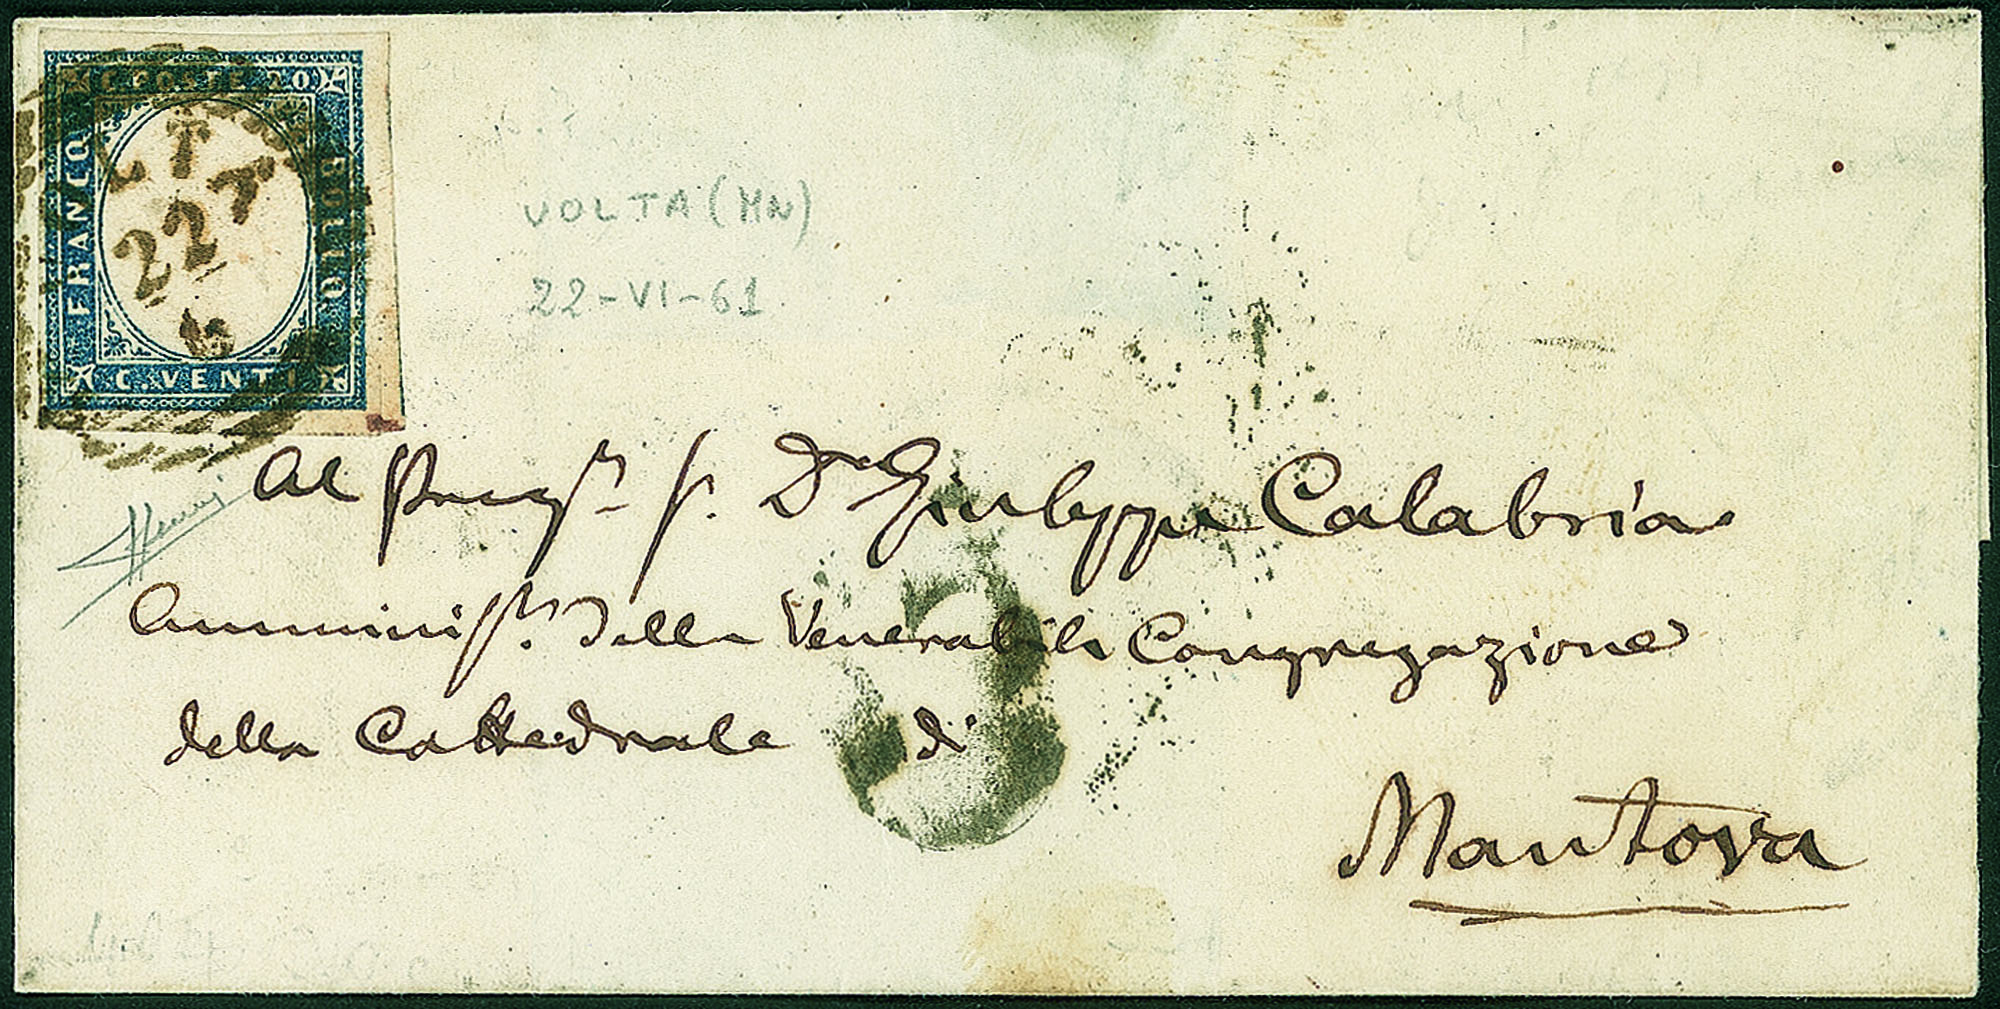 C. POSTE 20
FRANCO
BOLLO
C. VENTI
LT A
22
6
VOLTA (MN)
22-VI-61
Al Preg.r S. Dr Giuseppe Calabria
Amminis.r della Venerabile Congregazione
della Cattedrale di
Mantova